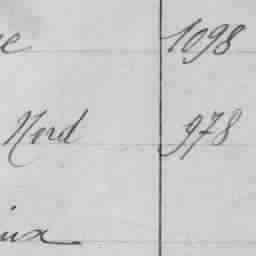 e 1098
Nord 978
ux